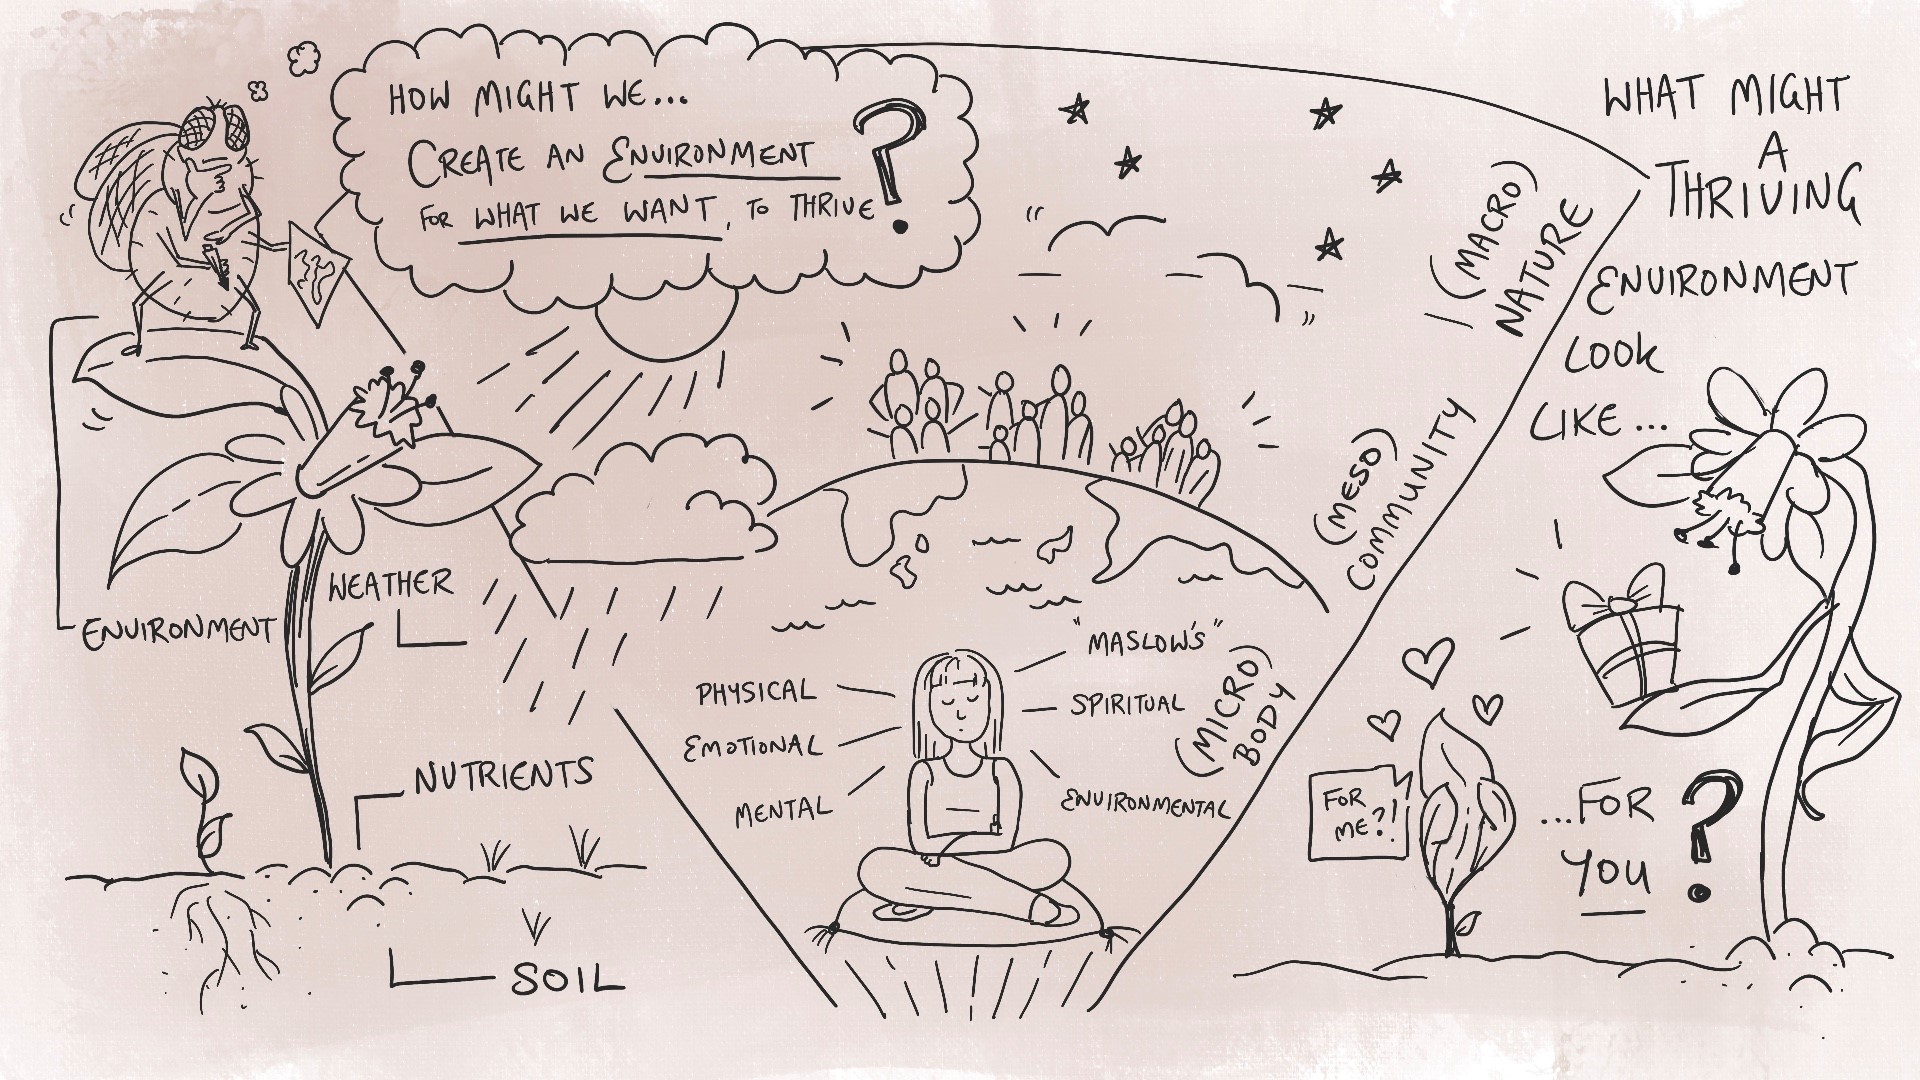 HOW MIGHT WE...
CREATE AN ENVIRONMENT
FOR WHAT WE WANT, TO THRIVE?
ENVIRONMENT
WEATHER
NUTRIENTS
SOIL
(MACRO)
NATURE
(MESO)
COMMUNITY
(MICRO)
BODY
PHYSICAL
EMOTIONAL
MENTAL
"MASLOW'S"
SPIRITUAL
ENVIRONMENTAL
WHAT MIGHT
A
THRIVING
ENVIRONMENT
LOOK
LIKE...
FOR
ME?!
...FOR
YOU?